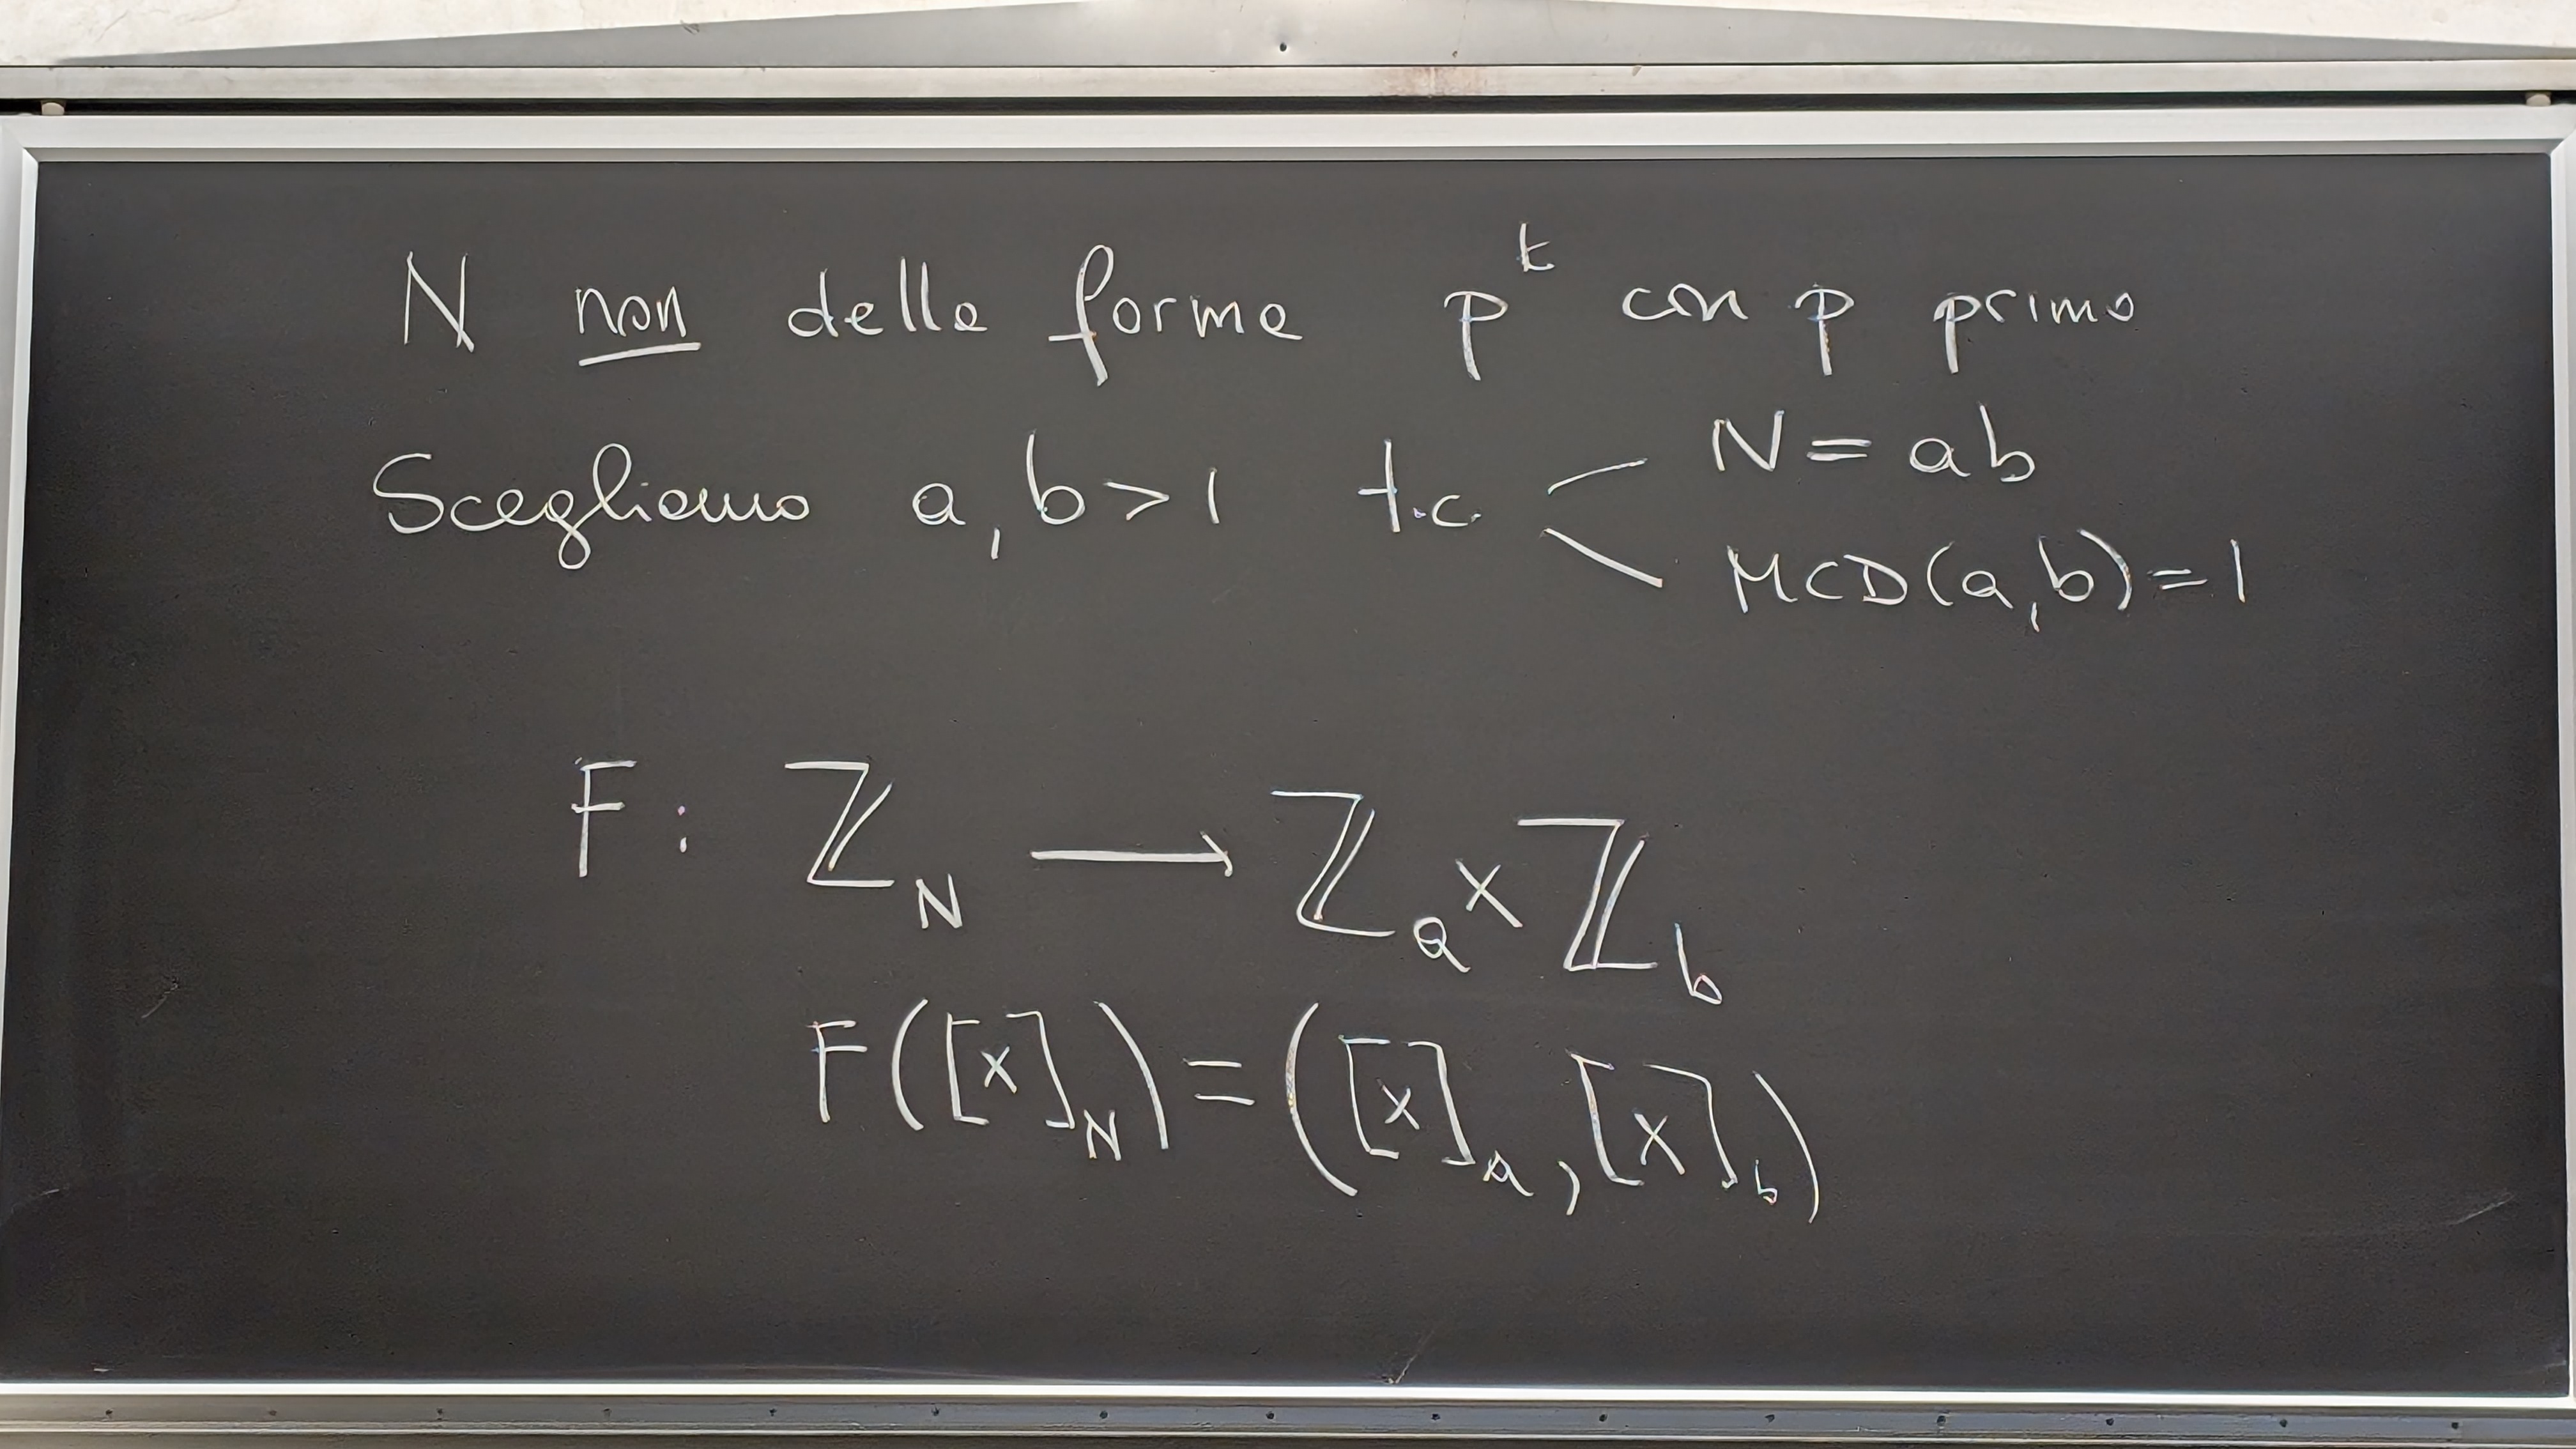 N non della forma p^t con p primo
Scegliamo a, b > 1 t.c. N = ab
MCD(a,b) = 1
F: ℤ_N ⟶ ℤ_a × ℤ_b
F([x]_N) = ([x]_a, [x]_b)